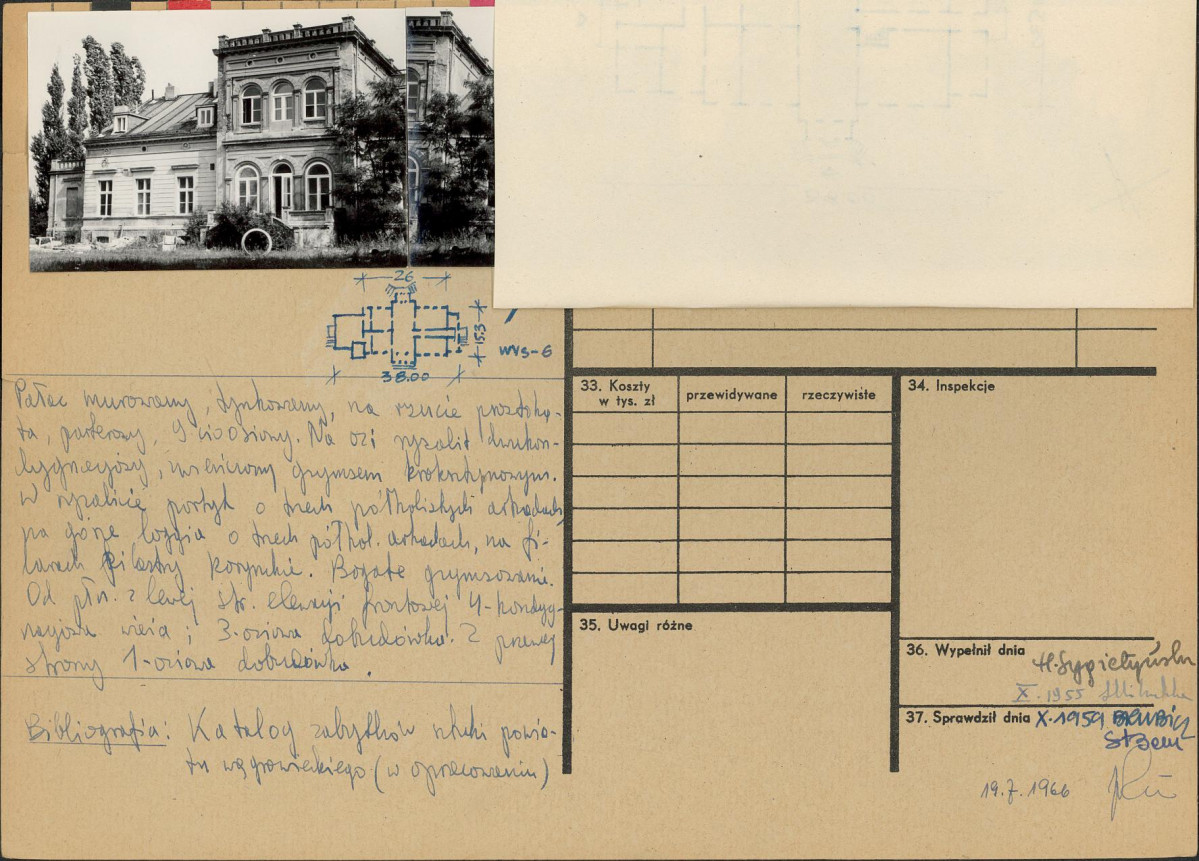 26
15.3
WVs-6
38.00
Pałac murowany, tynkowany, na rzucie prostoką-
ta, parterowy, 9 cioosiowy. Na osi ryzalit dwukon-
dygnacyjny, zwieńczony gzymsem
W ryzalicie portyk o trzech półkolistych arkadach,
na górze loggia o trzech półkol. arkadach, na fi-
larach pilastry korynckie. Bogate gzymsowanie.
Od płn. z lewej str. elewacji frontowej 4-kondyg-
nacjowa wieża i 3-osiowa dobudówka. Z prawej
strony 1-osiowa dobudówka.
Bibliografia: Katalog zabytków sztuki powia-
tu wągrowieckiego (w opracowaniu)
33. Koszty
w tys. zł
przewidywane
rzeczywiste
34. Inspekcje
35. Uwagi różne
36. Wypełnił dnia H. Sygietyńska
X. 1955
37. Sprawdził dnia X. 1959,
19.7.1966